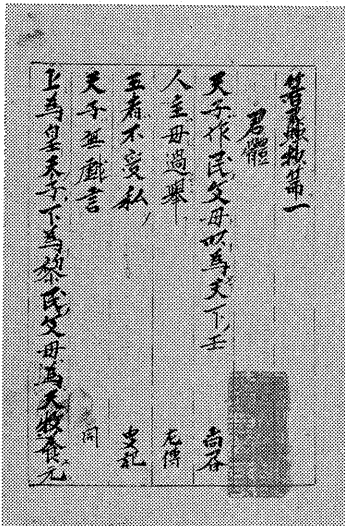 管蠡抄第一
君體
天子作民父母以為天下王 尚書
人主毋過舉 左傳
王者不受私 史記
天子無戲言 同
上為皇天子下為黎民父母為天牧養元々